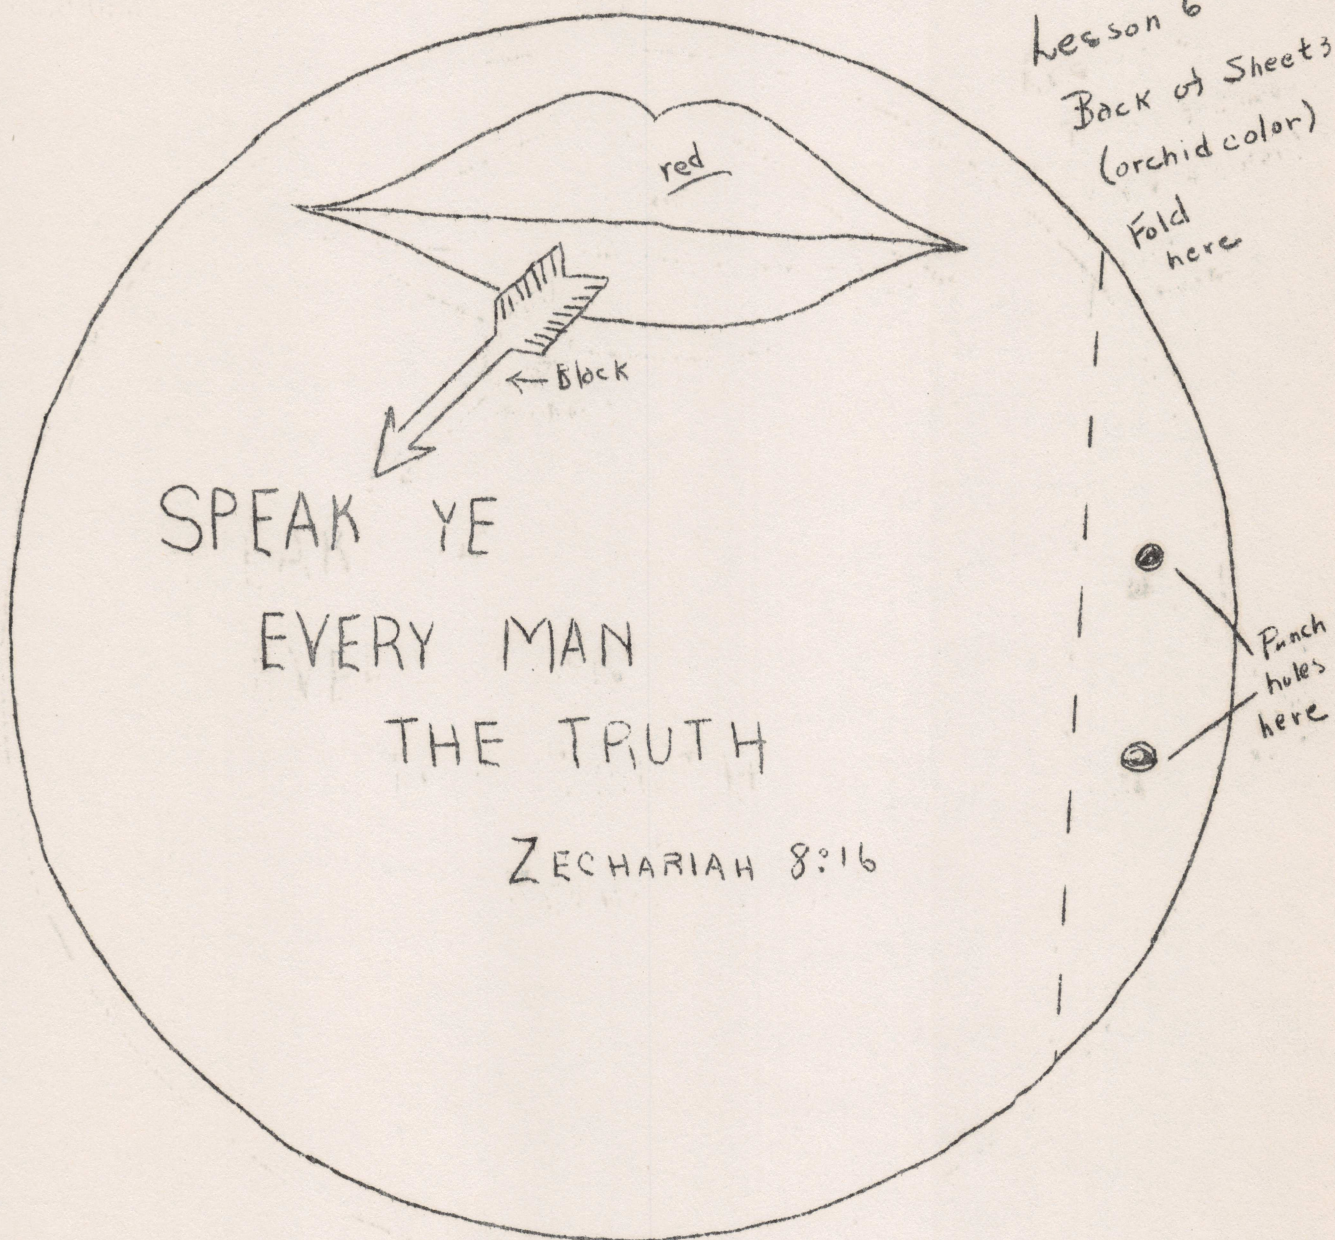 Lesson 6
Back of Sheet 3
(orchid color)
Fold
here
red
← Black
SPEAK YE
EVERY MAN
THE TRUTH
ZECHARIAH 8:16
Punch
holes
here